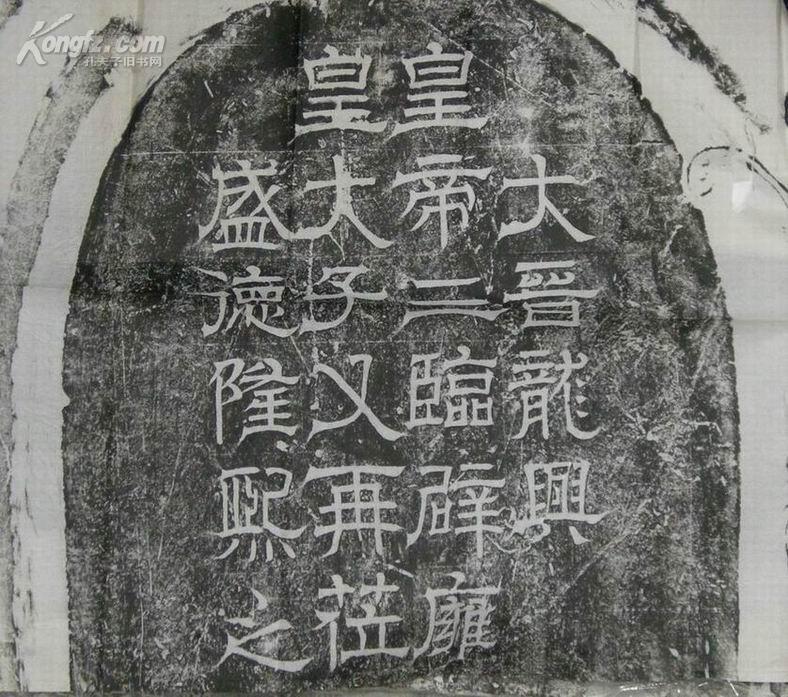 Kongfz.com
孔夫子旧书网
大晉龍興
皇帝三臨辟雍
皇大子又再莅
盛德隆熙之